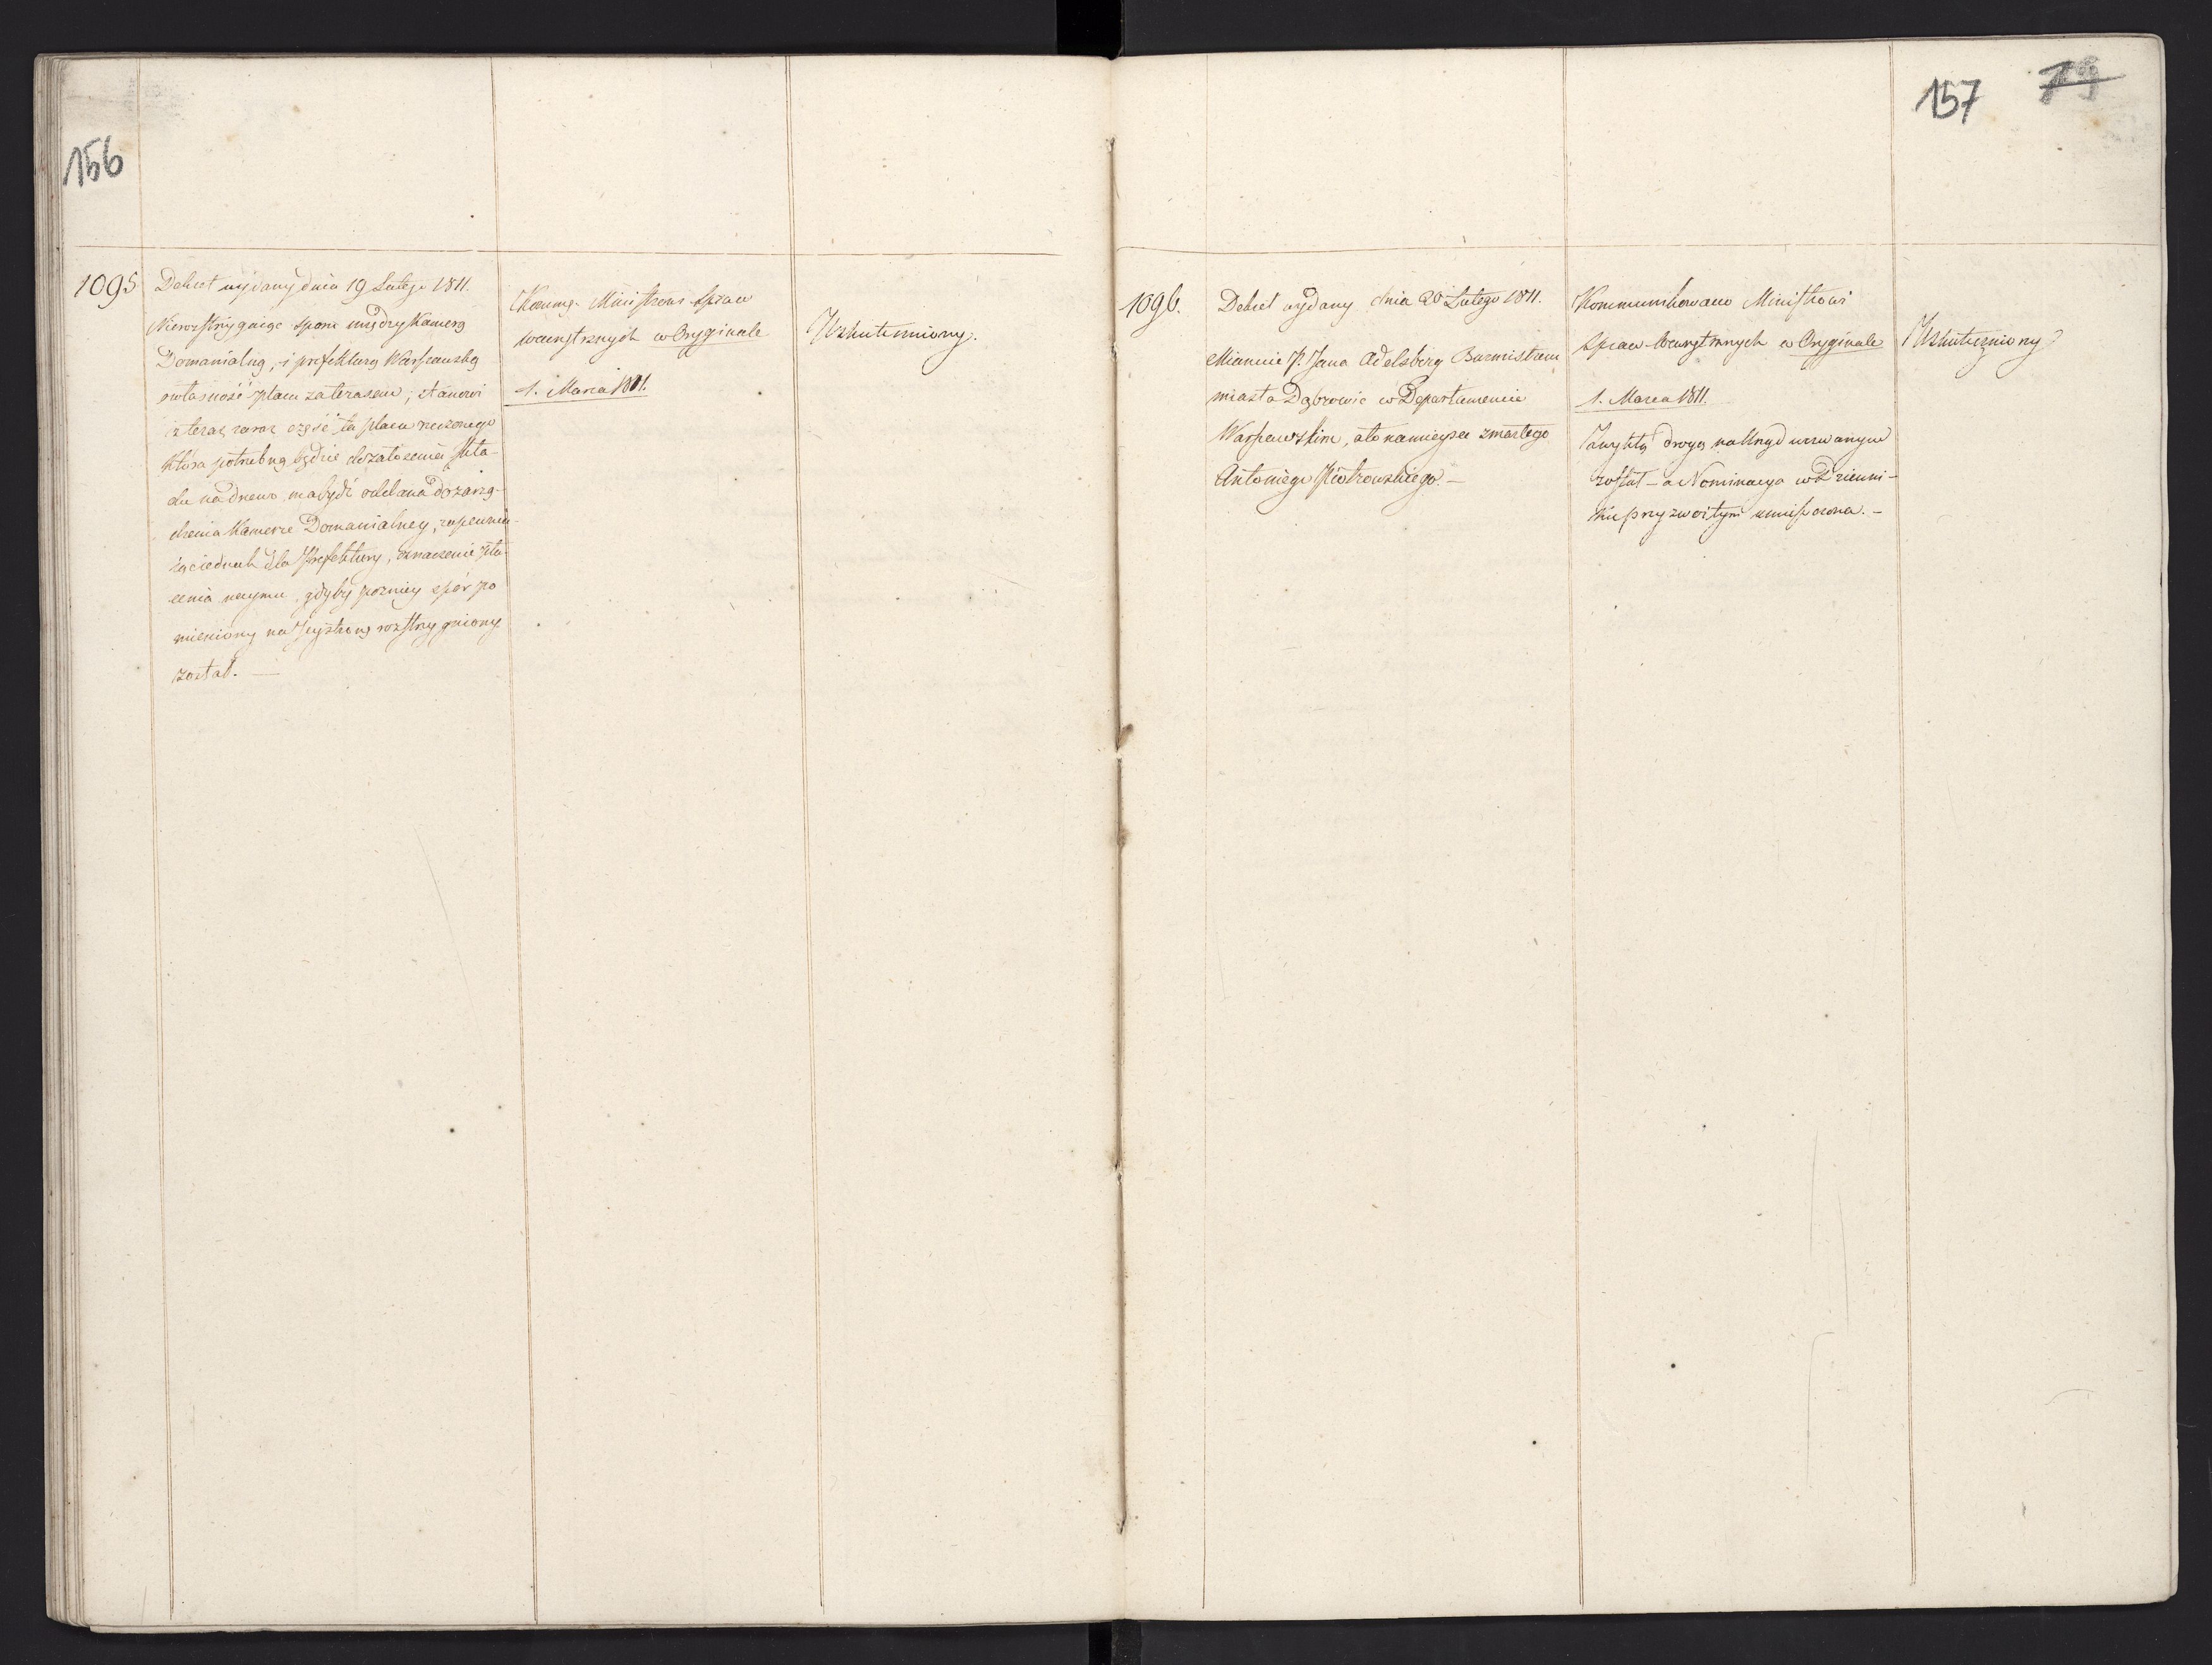 156
1095
Dekret wydany dnia 19 Lutego 1811.
Nierozstrzygaiąc sporu między Kamerą
Domanialną, i prefekturą Warszawską
o własność placu za terasem; stanowi
iż teraz zaraz część ta placu rzeczonego
która potrzebną będzie do założenia skła-
du na drewo ma bydź oddana do zarzą-
dzenia Kamerze Domanialney, zapewnia-
iąc iednak dla Prefektury, oznaczenie pła-
cenia naymu, gdyby pozniey spór po
mieniony na Jey stronę rozstrzygniony
został. —
Komg. Ministrowi Spraw
wewnętrznych w Oryginale
1. Marca 1811.
Uskuteczniony.
157
79
1096.
Dekret wydany dnia 20 Lutego 1811.
Mianuie P. Jana Adelsberg Burmistrzem
miasta Dąbrowic w Departamencie
Warszawskim, a to na mieysce zmarłego
Antoniego Piotrowskiego. —
Kommunikowano Ministrowi
Spraw Wewnętrznych w Oryginale
1. Marca 1811.
Zwykłą drogą na Urząd wezwanym
został – a Nominacya w Dzienni-
ku przyzwoitym umieszczona. –
Uskuteczniony